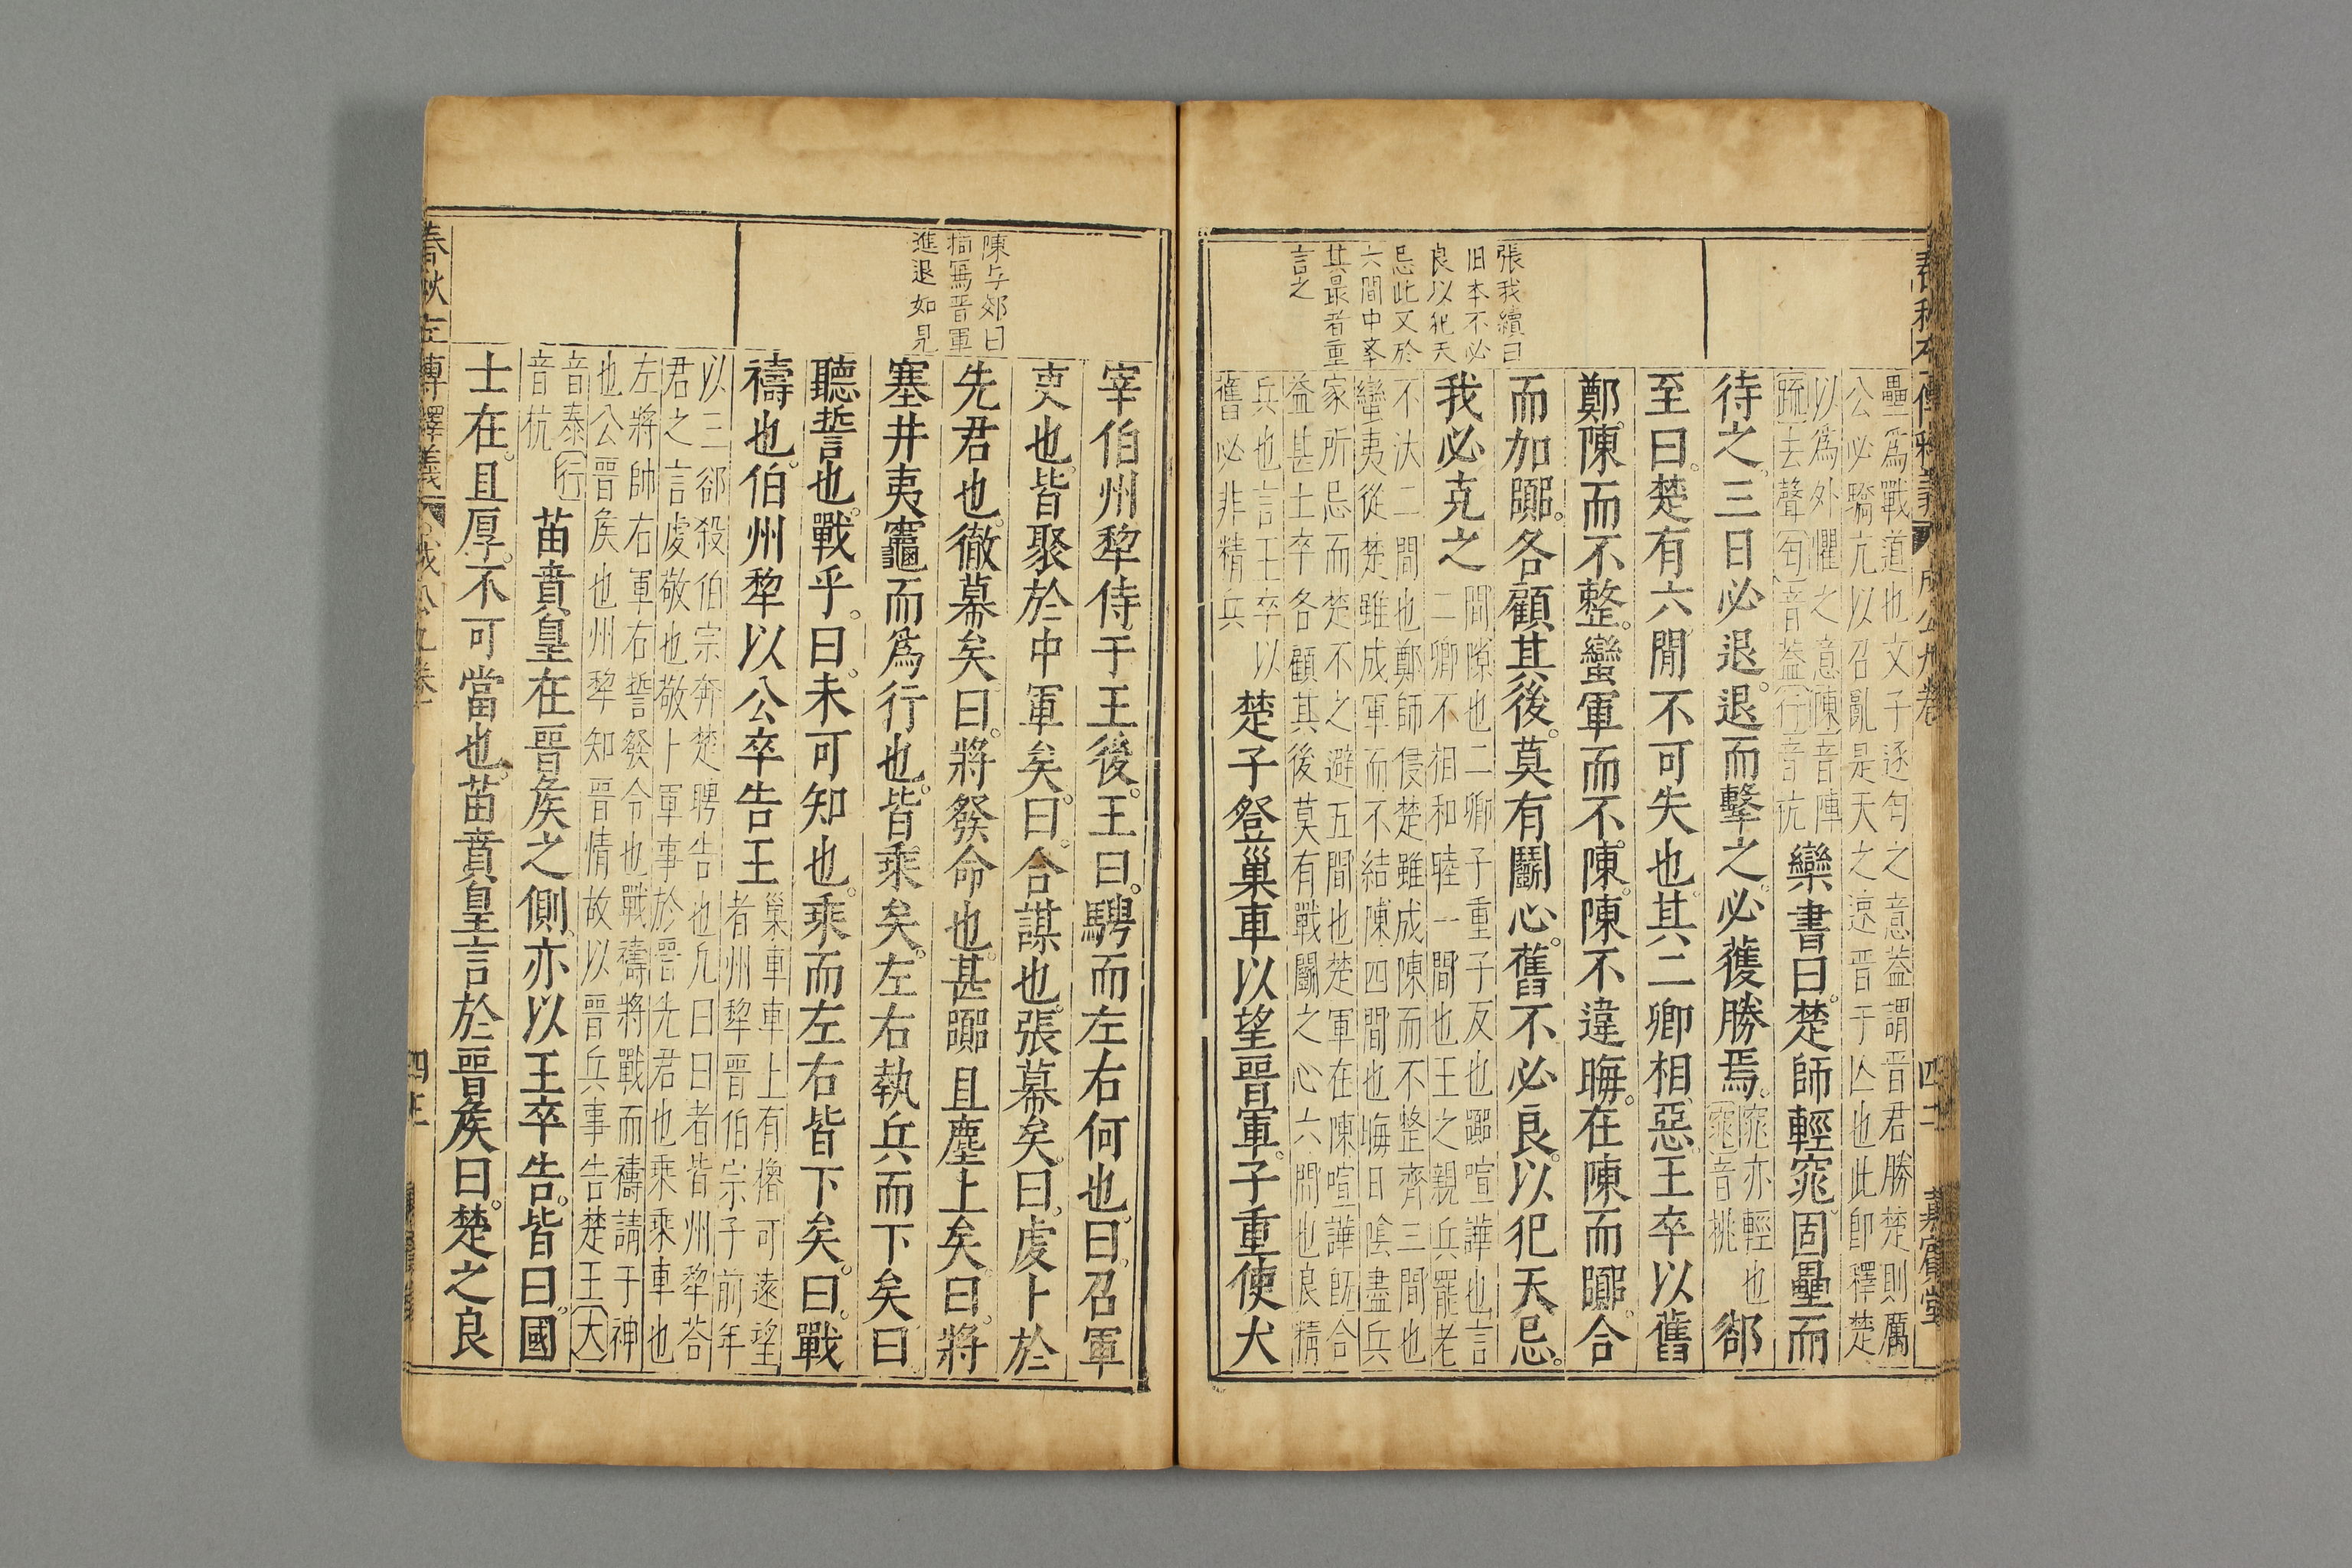 張我續曰
旧本不必
良以犯天
忌此又於
六間中擧
其最者重
言之
壘爲戰道也文子逐匄之意益謂晉君勝楚則厲
公必驕亢以召亂是天之速晉于亾也此即釋楚
以爲外懼之意陳音陣
疏去聲匄音葢行音抗
欒書曰楚師輕窕固壘而
待之三日必退退而擊之必獲勝焉
窕亦輕也
窕音挑
郤
至曰楚有六閒不可失也其二卿相惡王卒以舊
鄭陳而不整蠻軍而不陳陳不違晦在陳而嚻合
而加嚻各顧其後莫有鬭心舊不必良以犯天忌
我必克之
間隙也二卿子重子反也嚻喧譁也言
二卿不相和睦一間也王之親兵罷老
不汰二間也鄭師侵楚雖成陳而不整齊三間也
蠻夷從楚雖成軍而不結陳四間也晦日陰盡兵
家所忌而楚不之避五間也楚軍在陳喧譁旣合
益甚士卒各顧其後莫有戰鬭之心六間也良精
兵也言王卒以
舊必非精兵
楚子登巢車以望晉軍子重使大
陳与郊曰
描寫晉軍
進退如見
宰伯州犂侍于王後王曰騁而左右何也曰召軍
吏也皆聚於中軍矣曰合謀也張幕矣曰虔卜於
先君也徹幕矣曰將發命也甚嚻且塵上矣曰將
塞井夷竈而爲行也皆乘矣左右執兵而下矣曰
聽誓也戰乎曰未可知也乘而左右皆下矣曰戰
禱也伯州犂以公卒告王
巢車車上有櫓可遠望
者州犂晉伯宗子前年
以三郤殺伯宗奔楚聘告也凡曰曰者皆州犂荅
君之言虔敬也敬卜軍事於晉先君也乘乘車也
左將帥右軍右誓發令也戰禱將戰而禱請于神
也公晉矦也州犂知晉情故以晉兵事告楚王大
音泰行
音杭
苗賁皇在晉矦之側亦以王卒告皆曰國
士在且厚不可當也苗賁皇言於晉矦曰楚之良
春秋左傳釋義